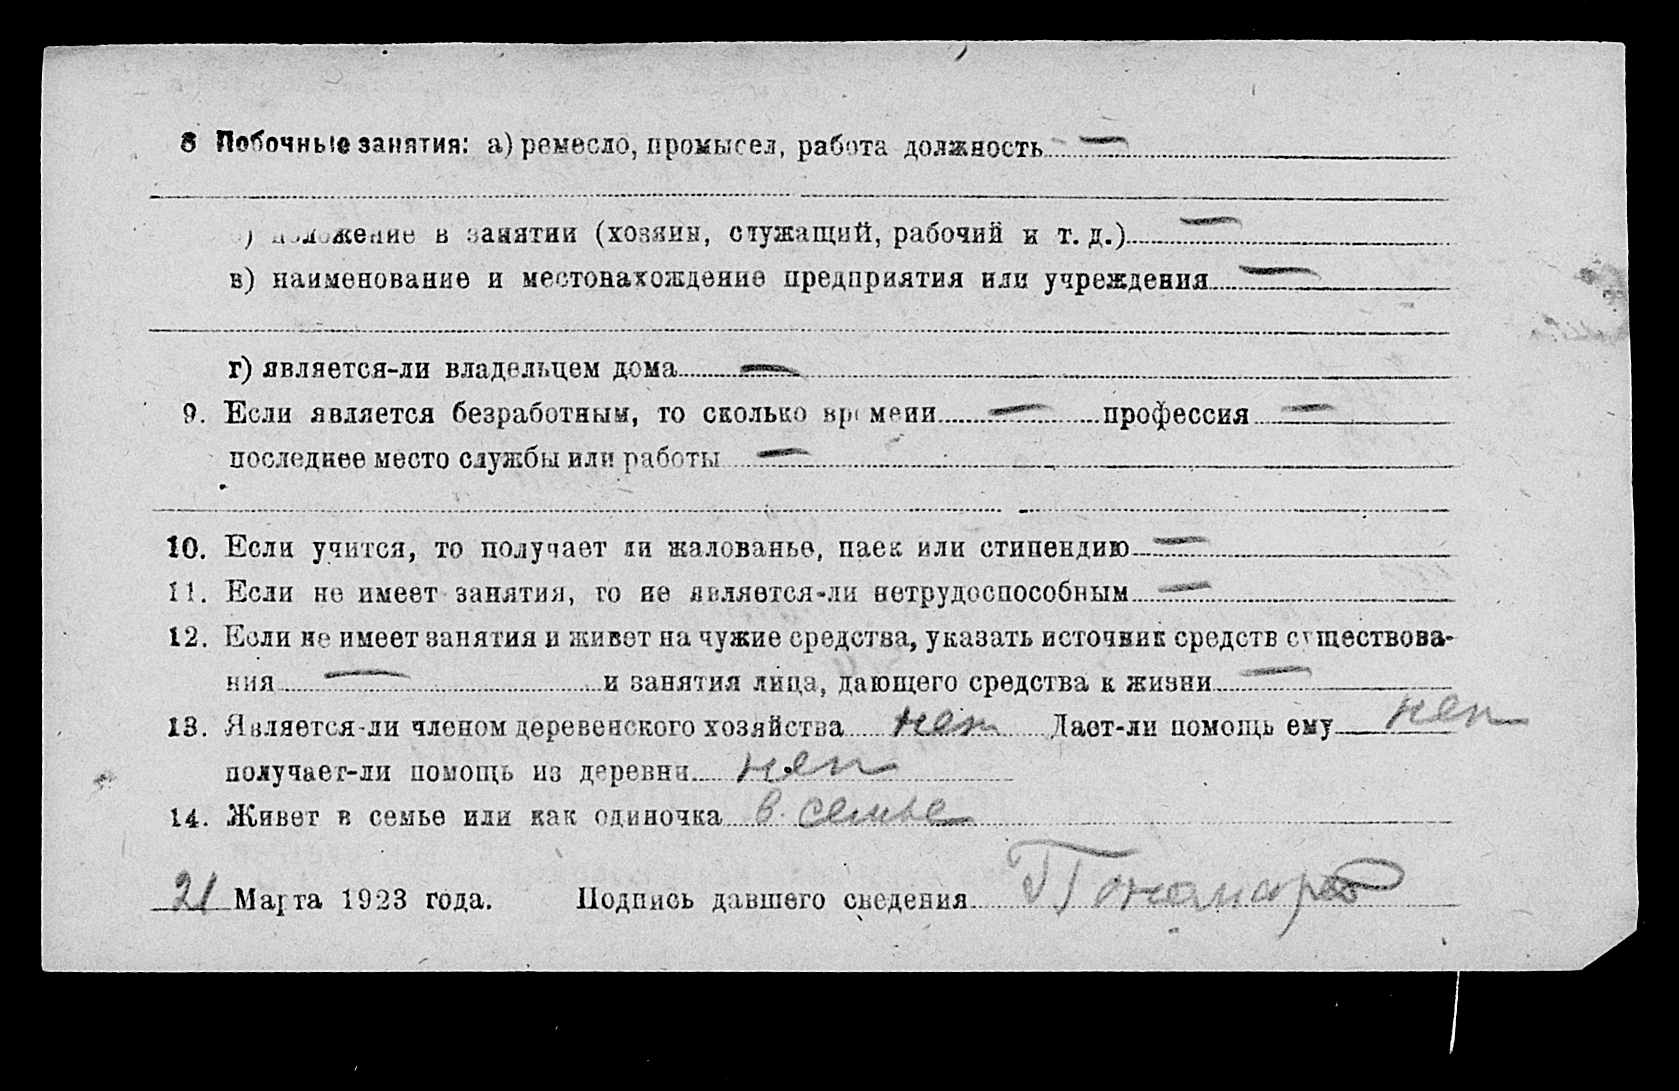 8 Побочные занятия: а) ремесло, промысел, работа должность —
б) положение в занятии (хозяин, служащий, рабочий и т. д.) —
в) наименование и местонахождение предприятия или учреждения —
г) является-ли владельцем дома —
9. Если является безработным, то сколько времени — профессия —
последнее место службы или работы —
10. Если учится, то получает ли жалованье, паек или стипендию —
11. Если не имеет занятия, то не является-ли нетрудоспособным —
12. Если не имеет занятия и живет на чужие средства, указать источник средств существова-
ния — и занятия лица, дающего средства к жизни —
13. Является-ли членом деревенского хозяйства нет Дает-ли помощь ему нет
получает-ли помощь из деревни нет
14. Живет в семье или как одиночка в семье
21 Марта 1923 года. Подпись давшего сведения